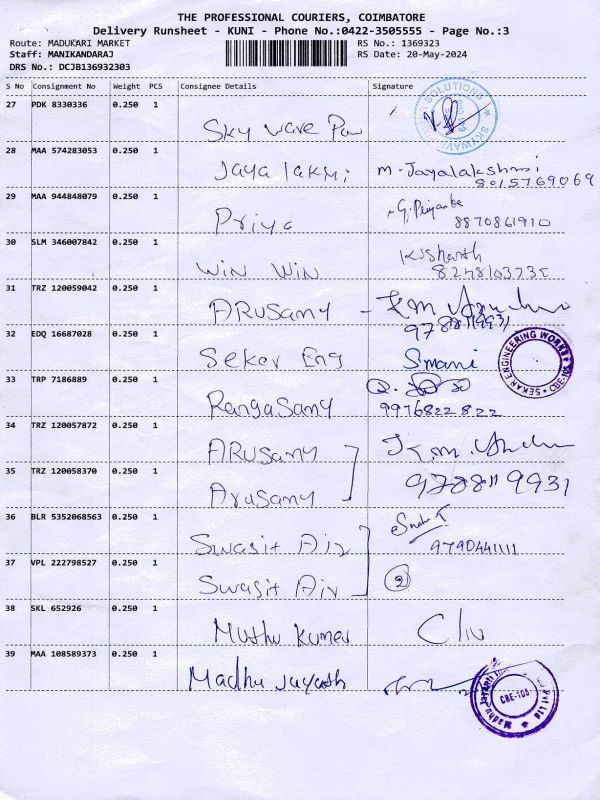 THE PROFESSIONAL COURIERS, COIMBATORE
Delivery Runsheet - KUNI - Phone No.:0422-3505555 - Page No.:3
Route: MADUKARI MARKET
RS No.: 1369323
Staff: MANIKANDARAJ
RS Date: 20-May-2024
DRS No.: DCJB136932303
S No Consignment No Weight PCS Consignee Details Signature
27 PDK 8330336 0.250 1 Sky Wave Pow
28 MAA 574283053 0.250 1 Jaya lakmi M. Jayalakshmi
8015769069
29 MAA 944848079 0.250 1 Priya G. Priyanka
8870861910
30 SLM 346007842 0.250 1 WIN WIN
31 TRZ 120059042 0.250 1 ARusamy
9788119931
32 EDQ 16687028 0.250 1 Seker Eng Smani
SEKAR ENGINEERING WORKS CBE-105
33 TRP 7186889 0.250 1 RangaSamy
9976822822
34 TRZ 120057872 0.250 1 ARUSamy
35 TRZ 120058370 0.250 1 Arusamy 9788119931
36 BLR 5352068563 0.250 1 Swasit Air
9790441111
37 VPL 222798527 0.250 1 Swasit Air 2
38 SKL 652926 0.250 1 Muthu Kumar
39 MAA 108589373 0.250 1 Madhu Jayanth
CBE-105